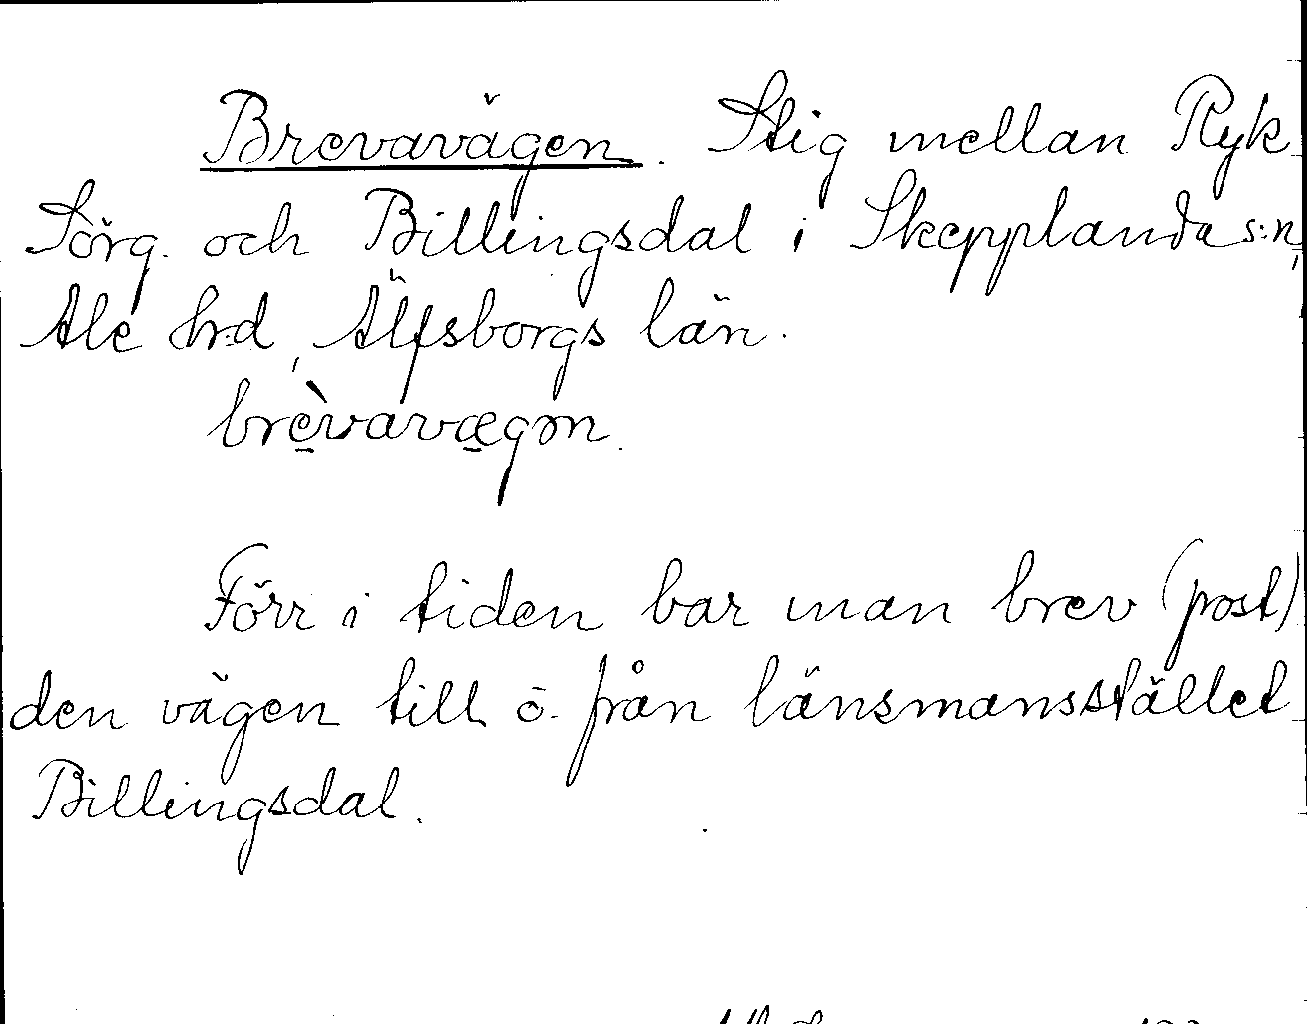 Brevavägen. Stig mellan Ryk
Sörg. och Billingsdal i Skepplanda s:n,
Ale hrd, Älfsborgs län.
brèvavægən.
Förr i tiden bar man brev (post)
den vägen till o. från länsmansstället
Billingsdal.